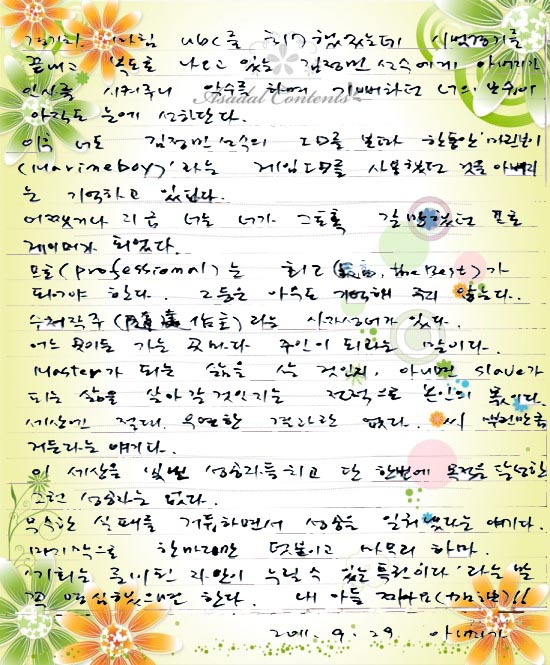 경기장. 아마팀 ubc를 취구했었는데 시범경기를
끝내고 복도로 나오고 있는 김정민 선수에게 아버지가
인사를 시켜주니 악수를 하며 기뻐하던 너의 모습이
아직도 눈에 선하단다.
이후 너도 김정민 선수의 ID를 본따 한동안 '마린보이
(Marineboy)'라는 게임 ID를 사용했던 것을 아버지
는 기억하고 있단다.
어쨌거나 지금 너는 너가 그토록 갈망했던 프로
게이머가 되었다.
프로(professional)는 최고(最高, the Best)가
되어야 한다. 2등은 아무도 기억해 주지 않는다.
수처작주(隨處作主)라는 사자성어가 있다.
어느 곳이든 가는 곳마다 주인이 되라는 말이다.
Master가 되는 삶을 살 것인지, 아니면 slave가
되는 삶을 살아갈 것인지는 전적으로 본인의 몫이다.
세상엔 절대 우연한 결과란 없다. 씨 뿌린만큼
거둔다라는 얘기다.
이 세상을 빛낸 성공자들치고 단 한번에 목적을 달성한
그런 성공자는 없다.
무수한 실패를 거듭하면서 성공을 일궈냈다는 얘기다.
마지막으로 한마디만 덧붙이고 마무리 하마.
'기회는 준비된 자만이 누릴 수 있는 특권이다'라는 말
꼭 명심했으면 한다. 내 아들 !!
2011. 9. 29 아버지가
Asadal Contents